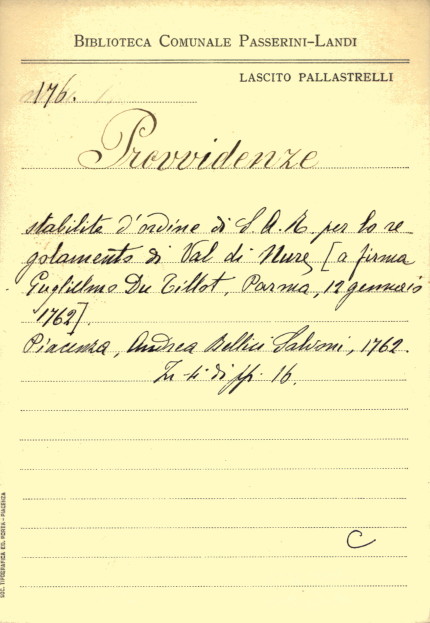 BIBLIOTECA COMUNALE PASSERINI-LANDI
LASCITO PALLASTRELLI
176.
Provvidenze
stabilite d'ordine di S. A. R. per lo re-
golamento di Val di Nure [a firma
Guglielmo Du Tillot, Parma, 12 gennaio
1762].
Piacenza, Andrea Bellici Salvoni, 1762.
In-4° di pp. 16.
C
SOC. TIPOGRAFICA ED. PORTA - PIACENZA